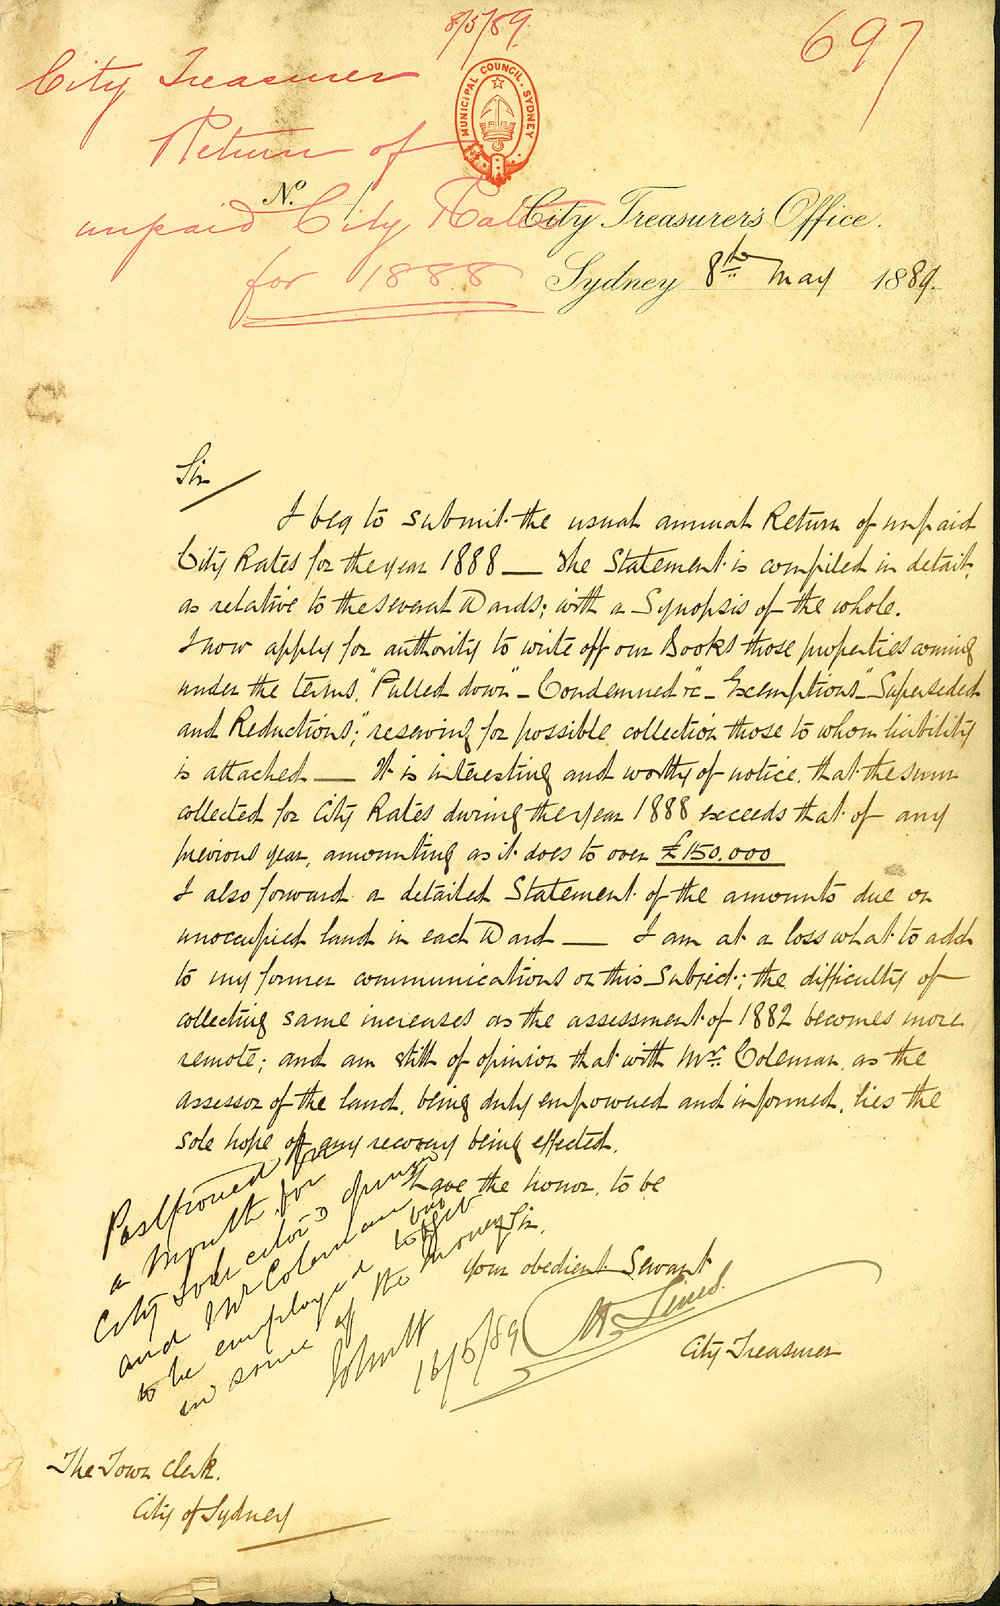 8/5/89.
697
City Treasurer
Return of
unpaid City Rates
for 1888
MUNICIPAL COUNCIL. SYDNEY
No.
City Treasurer's Office.
Sydney 8th May 1889.
Sir
I beg to submit the usual annual Return of unpaid
City Rates for the year 1888 — the Statement is compiled in detail,
as relative to the several Wards; with a Synopsis of the whole.
I now apply for authority to write off our Books those properties coming
under the terms, "Pulled down" - Condemned &c - Exemptions - Superseded
and Reductions;" reserving for possible collection those to whom liability
is attached — It is interesting and worthy of notice, that the sum
collected for City Rates during the year 1888 exceeds that of any
previous year, amounting as it does to over £150.000
I also forward a detailed Statement of the amounts due on
unoccupied land in each Ward — I am at a loss what to add
to my former communications on this Subject; the difficulty of
collecting same increases as the assessment of 1882 becomes more
remote; and am still of opinion that with Mr. Coleman, as the
assessor of the land, being duly empowered and informed, lies the
sole hope of any recovery being effected.
I have the honor, to be
Sir,
Your obedient Servant
City Treasurer
Postponed for
a month for
City Solicitor's opinion
and Mr Coleman
to be employed to get
in some of the money
16/5/89
The Town Clerk.
City of Sydney